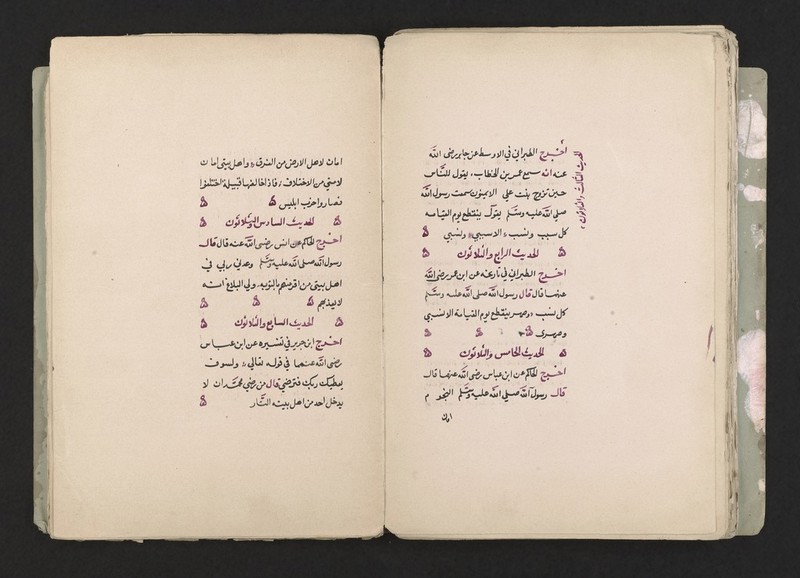 الحديث الثالث والثلاثون
اخرج الطبراني في الاوسط عن جابر رضى الله
عنه انه سمع عمر بن الخطاب، يقول للناس
حين تزوج بنت على الا سمعت رسول الله
صلى الله عليه وسلم يقول ينقطع يوم القيامه
كل سبب ونسب، الا سببي ونسبي
الحديث الرابع والثلاثون
اخرج الطبراني في تاريخه عن ابن عمر رضى الله
عنهما قال قال رسول الله صلى الله عليه وسلم
كل نسب، وصهر ينقطع يوم القيامة الا نسبي
وصهرى
الحديث الخامس والثلاثون
اخرج الحاكم عن ابن عباس رضى الله عنهما قال
قال رسول الله صلى الله عليه وسلم النجوم
امان
امان لاهل الارض من الغرق، واهل بيتى امان
لامتى من الاختلاف، فاذا خالفها قبيلة اختلفوا
فصاروا حزب ابليس
الحديث السادس والثلاثون
اخرج الحاكم عن انس رضى الله عنه قال قال
رسول الله صلى الله عليه وسلم وعدني ربي في
اهل بيتى من اقر منهم بالتوحيد، ولى البلاغ انه
لا يعذبهم
الحديث السابع والثلاثون
اخرج ابن جرير في تفسيره عن ابن عباس
رضى الله عنهما في قوله تعالى، ولسوف
يعطيك ربك فترضى قال من رضى محمد ان لا
يدخل احد من اهل بيته النار